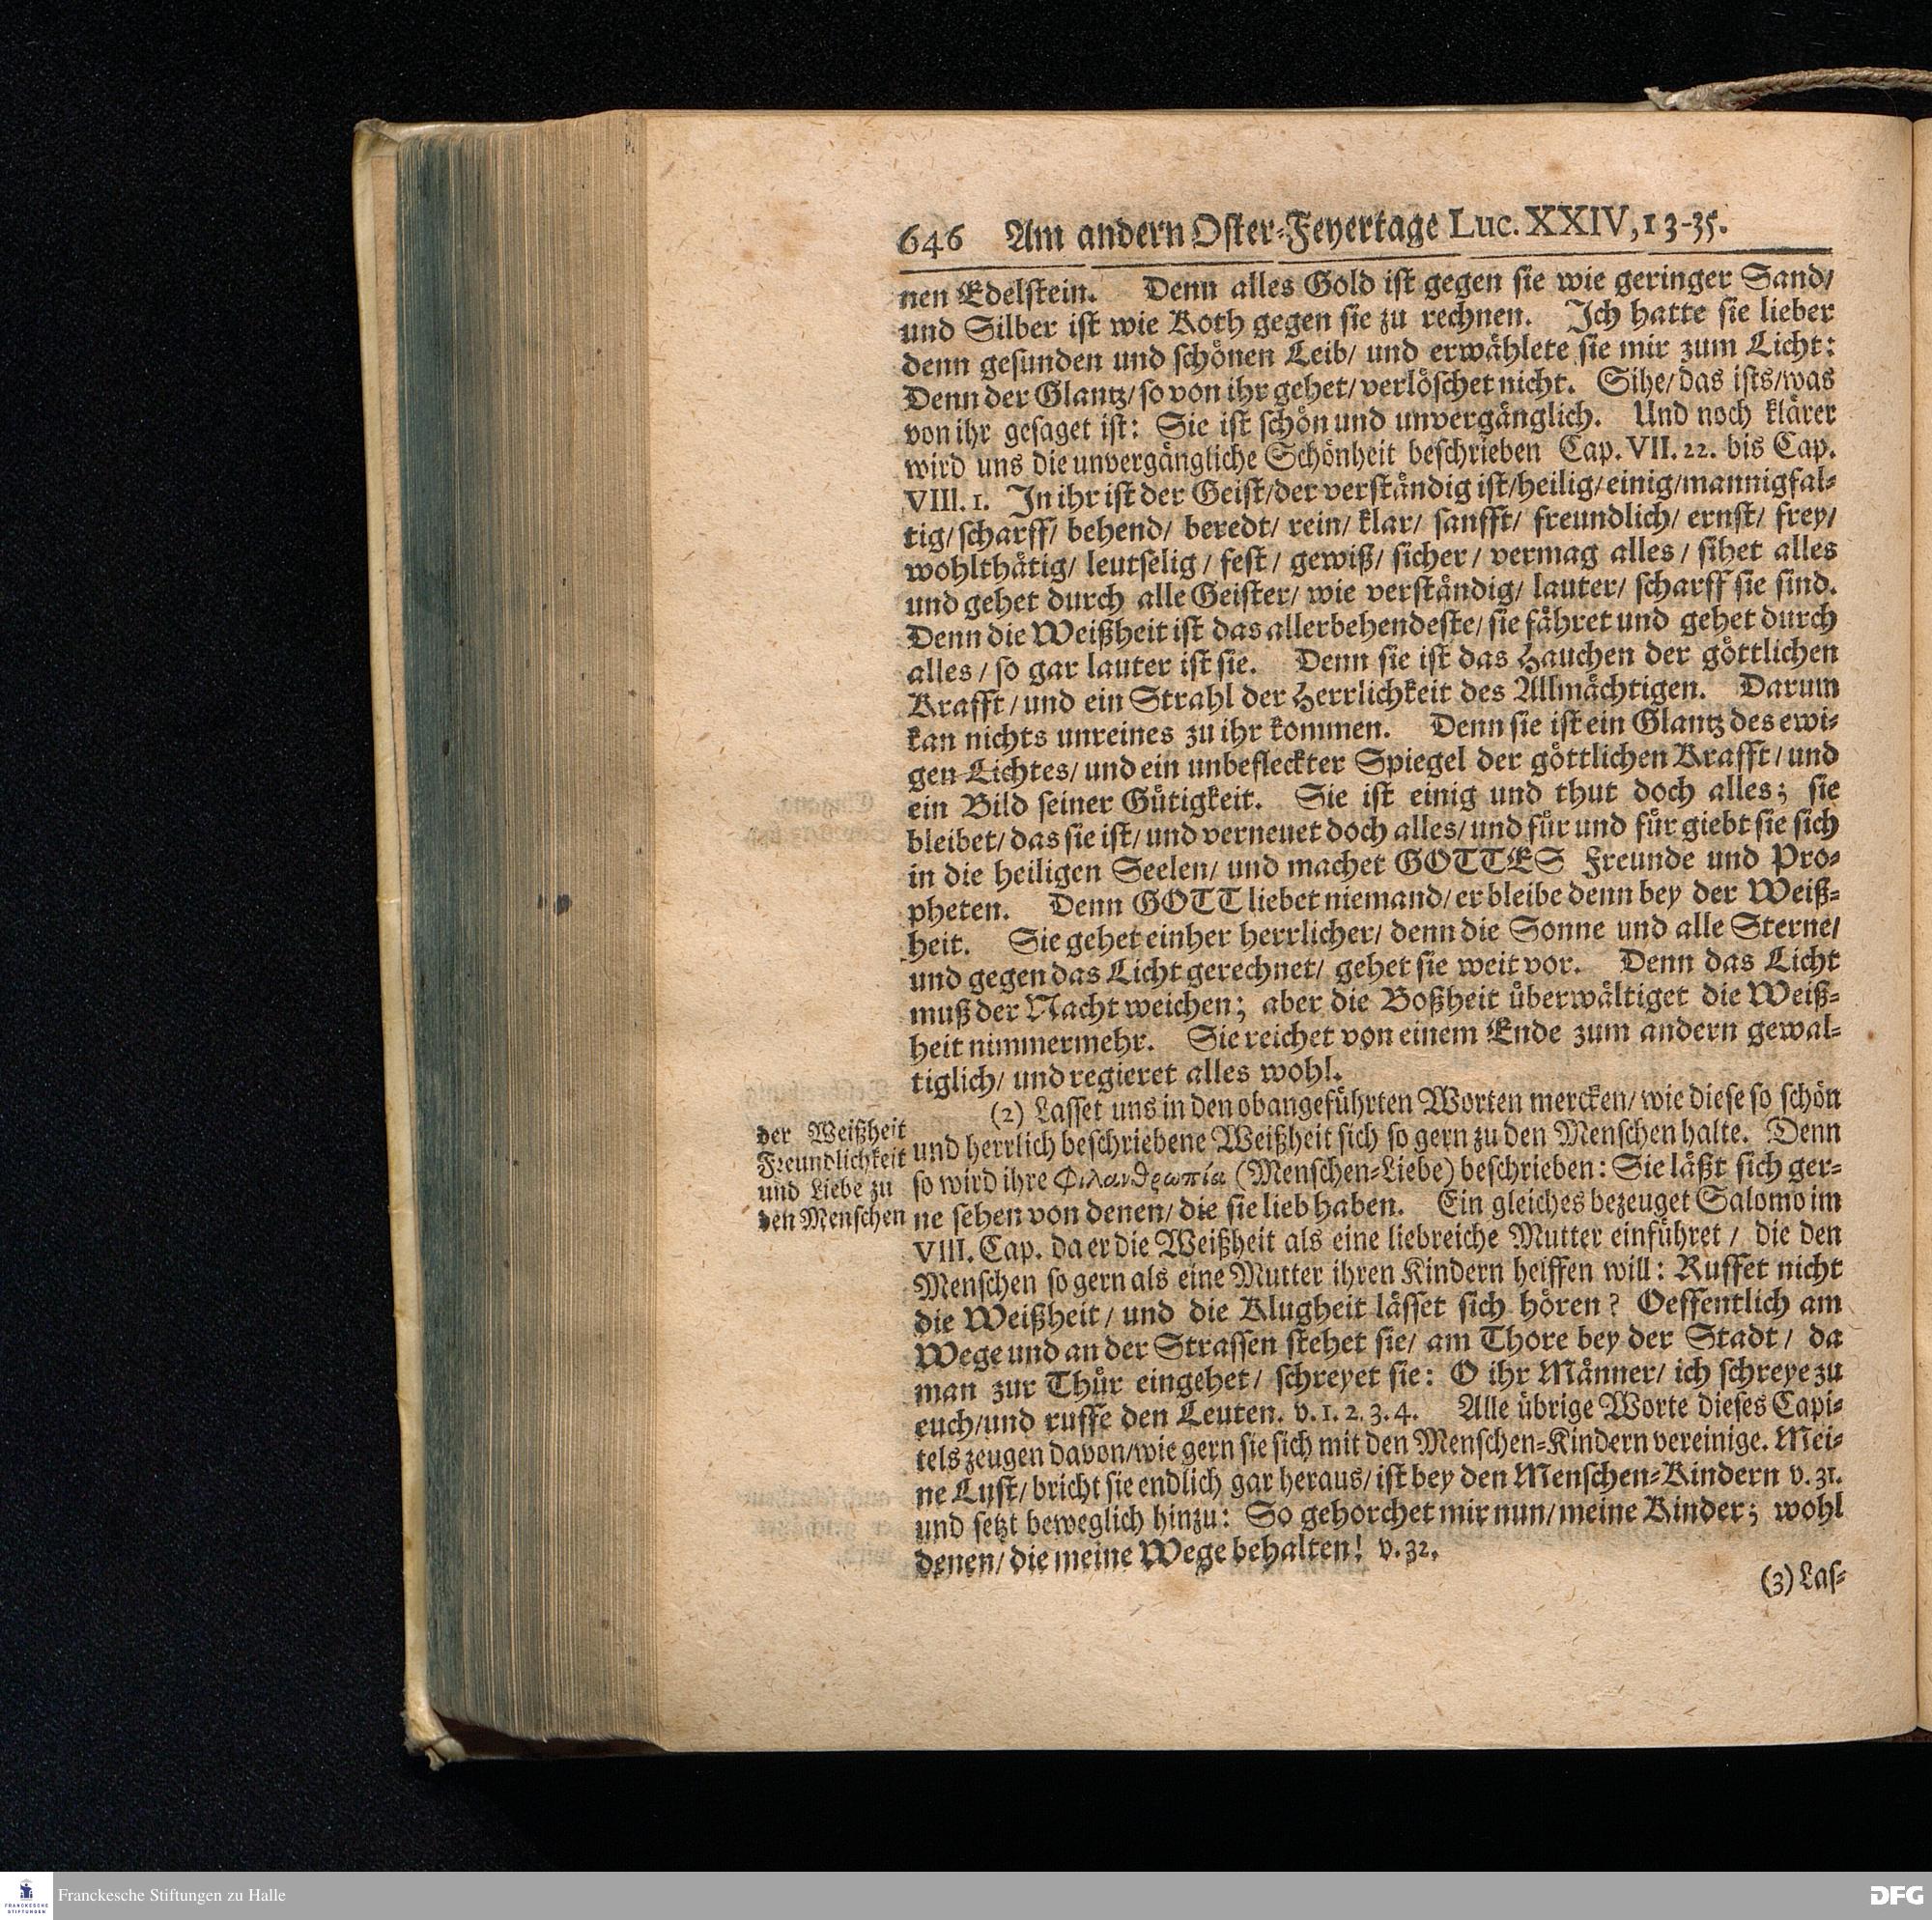 646 Am andern Oster-Feyertage Luc. XXIV, 13-35.
nen Edelstein. Denn alles Gold ist gegen sie wie geringer Sand/
und Silber ist wie Koth gegen sie zu rechnen. Ich hatte sie lieber
denn gesunden und schönen Leib/ und erwählete sie mir zum Licht:
Denn der Glantz/ so von ihr gehet/ verlöschet nicht. Sihe/ das ists/ was
von ihr gesaget ist: Sie ist schön und unvergänglich. Und noch klärer
wird uns die unvergängliche Schönheit beschrieben Cap. VII. 22. bis Cap.
VIII. 1. In ihr ist der Geist/ der verständig ist/ heilig/ einig/ mannigfal-
tig/ scharff/ behend/ beredt/ rein/ klar/ sanfft/ freundlich/ ernst/ frey/
wohlthätig/ leutselig/ fest/ gewiß/ sicher/ vermag alles/ sihet alles
und gehet durch alle Geister/ wie verständig/ lauter/ scharff sie sind.
Denn die Weißheit ist das allerbehendeste/ sie fähret und gehet durch
alles/ so gar lauter ist sie. Denn sie ist das Hauchen der göttlichen
Krafft/ und ein Strahl der Herrlichkeit des Allmächtigen. Darum
kan nichts unreines zu ihr kommen. Denn sie ist ein Glantz des ewi-
gen Lichtes/ und ein unbefleckter Spiegel der göttlichen Krafft/ und
ein Bild seiner Gütigkeit. Sie ist einig und thut doch alles; sie
bleibet/ das sie ist/ und verneuet doch alles/ und für und für giebt sie sich
in die heiligen Seelen/ und machet GOTTES Freunde und Pro-
pheten. Denn GOTT liebet niemand/ er bleibe denn bey der Weiß-
heit. Sie gehet einher herrlicher/ denn die Sonne und alle Sterne/
und gegen das Licht gerechnet/ gehet sie weit vor. Denn das Licht
muß der Nacht weichen; aber die Boßheit überwältiget die Weiß-
heit nimmermehr. Sie reichet von einem Ende zum andern gewal-
tiglich/ und regieret alles wohl.
(2) Lasset uns in den obangeführten Worten mercken/ wie diese so schön
und herrlich beschriebene Weißheit sich so gern zu den Menschen halte. Denn
so wird ihre Φιλανθρωπία (Menschen-Liebe) beschrieben: Sie läßt sich ger-
ne sehen von denen/ die sie lieb haben. Ein gleiches bezeuget Salomo im
VIII. Cap. da er die Weißheit als eine liebreiche Mutter einführet/ die den
Menschen so gern als eine Mutter ihren Kindern helffen will: Ruffet nicht
die Weißheit/ und die Klugheit lässet sich hören? Oeffentlich am
Wege und an der Strassen stehet sie/ am Thore bey der Stadt/ da
man zur Thür eingehet/ schreyet sie: O ihr Männer/ ich schreye zu
euch/ und ruffe den Leuten. v. 1. 2. 3. 4. Alle übrige Worte dieses Capi-
tels zeugen davon/ wie gern sie sich mit den Menschen-Kindern vereinige. Mei-
ne Lust/ bricht sie endlich gar heraus/ ist bey den Menschen-Kindern v. 31.
und setzt beweglich hinzu: So gehorchet mir nun/ meine Kinder; wohl
denen/ die meine Wege behalten! v. 32.
(3) Las-
der Weißheit
Freundlichkeit
und Liebe zu
den Menschen
Franckesche Stiftungen zu Halle
FRANCKESCHE
STIFTUNGEN
DFG